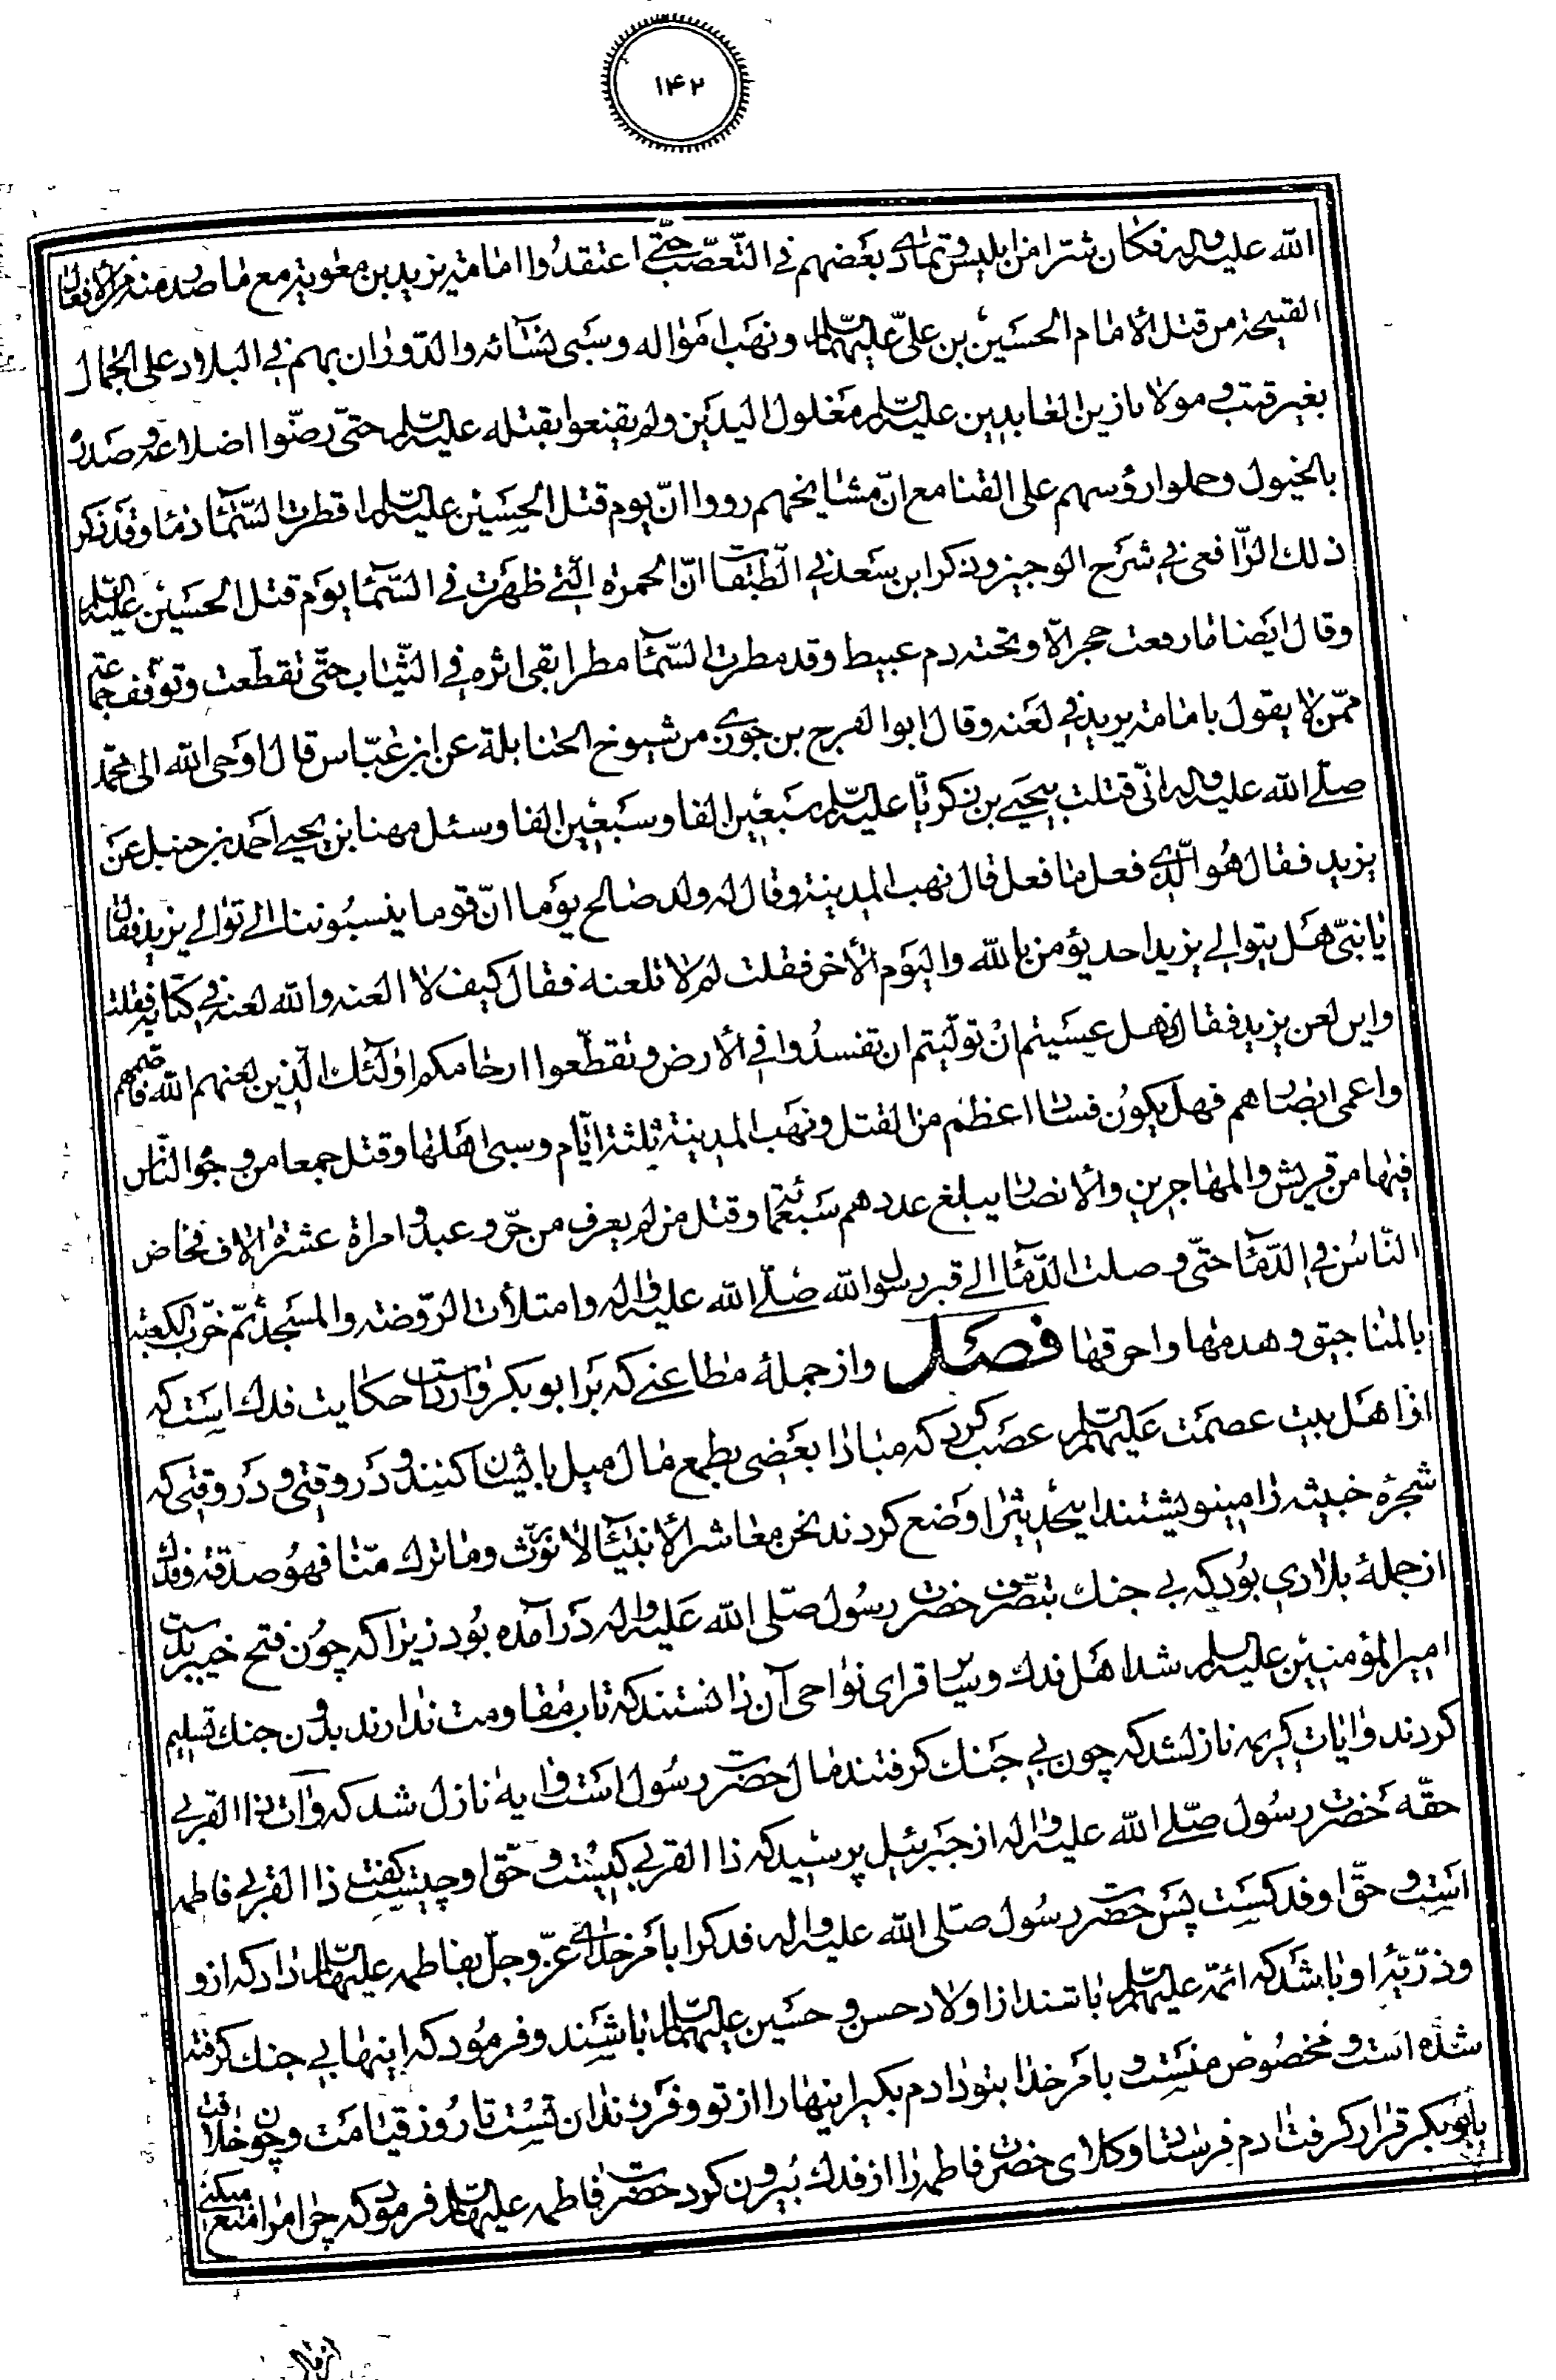 ۱۴۲
الله علیه واله فکان شرا من ابلیس وتمادی بعضهم فی التعصب حتی اعتقدوا امامة یزید بن معویة مع ما صدر منه من الافعال
القبیحة من قتل الامام الحسین بن علی علیهما السلام ونهب امواله وسبی نسائه والدوران بهم فی البلاد علی الجمال
بغیر قتب ومولانا زین العابدین علیه السلام مغلول الیدین ولم یقنعوا بقتله علیه السلام حتی رضوا اضلاعه وصدره
بالخیول وحملوا رؤسهم علی القنا مع ان مشایخهم رووا ان یوم قتل الحسین علیه السلام قطرت السماء دما وقد ذکر
ذلك الرافعی فی شرح الوجیز وذکر ابن سعد فی الطبقات ان الحمرة التی ظهرت فی السماء یوم قتل الحسین علیه السلم
وقال ایضا ما رفعت حجر الا وتحته دم عبیط وقد مطرت السماء مطرا بقی اثره فی الثیاب حتی تقطعت وتوقف جماعة
ممن لا یقول بامامة یزید فی لعنه وقال ابو الفرج بن جوزی من شیوخ الحنابلة عن ابن عباس قال اوحی الله الی محمد
صلی الله علیه واله انی قتلت بیحیی بن زکریا علیه السلم سبعین الفا وسبعین الفا وسئل مهنا بن یحیی احمد بن حنبل عن
یزید فقال هو الذی فعل ما فعل قال نهب المدینة وقال له ولد صالح یوما ان قوما ینسبوننا الی توالی یزید فقال
یا بنی هل یتوالی یزید احد یؤمن بالله والیوم الاخر فقلت لم لا تلعنه فقال کیف لا العنه والله لعنه فی کتابه فقلت
واین لعن یزید فقال فهل عسیتم ان تولیتم ان تفسدوا فی الارض وتقطعوا ارحامکم اولئك الذین لعنهم الله فاصمهم
واعمی ابصارهم فهل یکون فساد اعظم من القتل ونهب المدینة ثلثة ایام وسبی اهلها وقتل جمعا من وجوه الناس
فیها من قریش والمهاجرین والانصار یبلغ عددهم سبعمائة وقتل من لم یعرف من حر وعبد وامراة عشرة الاف فخاض
الناس فی الدماء حتی وصلت الدماء الی قبر رسول الله صلی الله علیه واله وامتلأت الروضة والمسجد ثم خرب الکعبة
بالمناجیق وهدمها واحرقها فصل واز جملهٔ مطاعنی که بر ابو بکر وارد است حکایت فدك است که
از اهل بیت عصمت علیهم السلم غصب کرد که مبادا بعضی بطمع مال میل بایشان کنند و در وقتی و در وقتی که
شجرهٔ خبیثه را مینویشتند این حدیث را وضع کردند نحن معاشر الانبیاء لا نورث وما ترك منا فهو صدقة وفدك
از جملهٔ بلادی بود که بی جنك بتصرف حضرت رسول صلی الله علیه واله در آمده بود زیرا که چون فتح خیبر بدست
امیر المؤمنین علیه السلم شد اهل فدك و سایر قرای نواحی آن دانستند که تاب مقاومت ندارند بدون جنك تسلیم
کردند و ایات کریمه نازلشد که چون بی جنك کرفتند مال حضرت رسول است و ایه نازل شد که وات ذا القربی
حقه حضرت رسول صلی الله علیه واله از جبرئیل پرسید که ذا القربی کیست و حق او چیست کفت ذا القربی فاطمه
است و حق او فدکست پس حضرت رسول صلی الله علیه واله فدك را بامر خدای عز وجل بفاطمه علیها السلم داد که از و
وذریهٔ او باشد که ائمه علیهم السلم باشند از اولاد حسن و حسین علیهما السلم باشند و فرمود که اینها بی جنك کرفته
شده است و مخصوص منست و بامر خدا بتو دادم بکیر اینها را از تو و فرزندان تست تا روز قیامت و چون خلافت
بابو بکر قرار کرفت ادم فرستاد و وکلای حضرت فاطمه را از فدك بیرون کرد حضرت فاطمه علیها السلم فرمود که چرا مرا منع میکنی